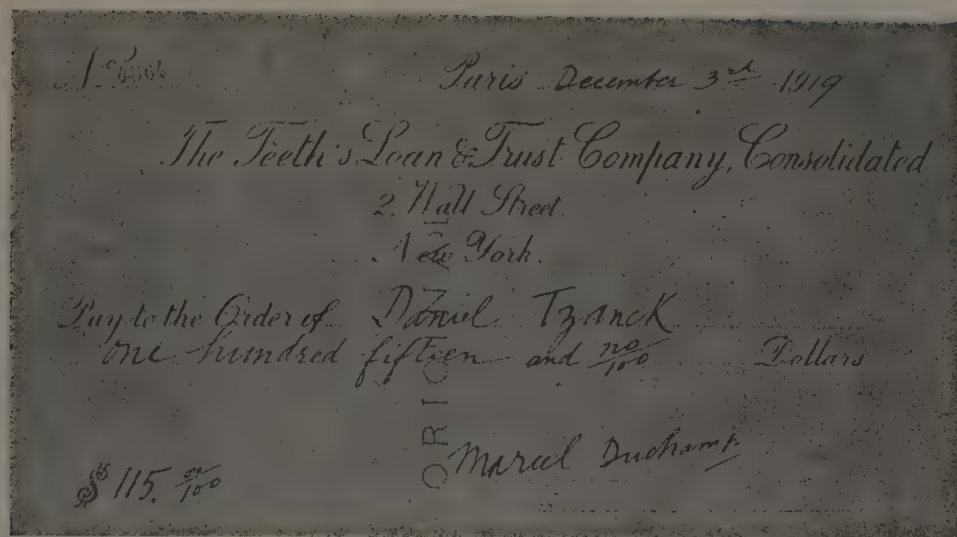 Paris December 3rd 1919
The Teeth's Loan & Trust Company, Consolidated
2. Wall Street.
New York.
Pay to the Order of Daniel Tzanck
one hundred fifteen and no/100 Dollars
Marcel Duchamp
$ 115. oo/100